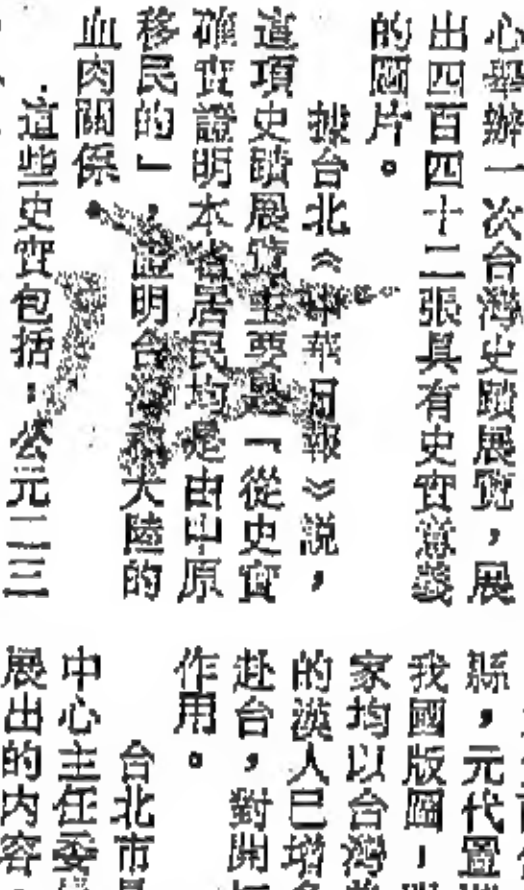 心舉辦一次台灣史蹟展覽，展
出四百四十二張具有史實意義
的圖片。
據台北《中華日報》說，
這項史蹟展覽主要是「從史實
確實證明本省居民均是由中原
移民的」，證明台灣和大陸的
血肉關係。
這些史實包括：公元二三
縣，元代置
我國版圖，
家均以台灣
的漢人已增
赴台，對開
作用。
台北市
中心主任委
展出的內容